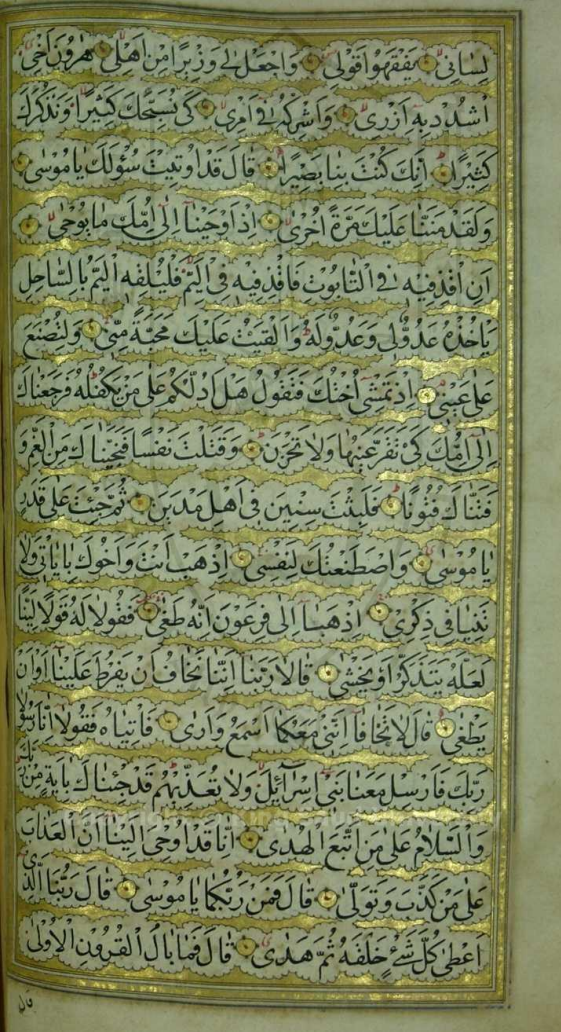 لِسَانِى يَفْقَهُوا قَوْلِى وَاجْعَلْ لِى وَزِيرًا مِنْ اَهْلِى هٰرُونَ اَخِى
اشْدُدْ بِهٖ اَزْرِى وَاَشْرِكْهُ فِى اَمْرِى كَىْ نُسَبِّحَكَ كَثِيرًا وَنَذْكُرَكَ
كَثِيرًا اِنَّكَ كُنْتَ بِنَا بَصِيرًا قَالَ قَدْ اُوتِيتَ سُؤْلَكَ يَا مُوسٰى
وَلَقَدْ مَنَنَّا عَلَيْكَ مَرَّةً اُخْرٰى اِذْ اَوْحَيْنَا اِلٰى اُمِّكَ مَا يُوحٰى
اَنِ اقْذِفِيهِ فِى التَّابُوتِ فَاقْذِفِيهِ فِى الْيَمِّ فَلْيُلْقِهِ الْيَمُّ بِالسَّاحِلِ
يَاْخُذْهُ عَدُوٌّ لِى وَعَدُوٌّ لَهُ وَاَلْقَيْتُ عَلَيْكَ مَحَبَّةً مِنِّى وَلِتُصْنَعَ
عَلٰى عَيْنِى اِذْ تَمْشِى اُخْتُكَ فَتَقُولُ هَلْ اَدُلُّكُمْ عَلٰى مَنْ يَكْفُلُهُ فَرَجَعْنَاكَ
اِلٰى اُمِّكَ كَىْ تَقَرَّ عَيْنُهَا وَلَا تَحْزَنَ وَقَتَلْتَ نَفْسًا فَنَجَّيْنَاكَ مِنَ الْغَمِّ وَ
فَتَنَّاكَ فُتُونًا فَلَبِثْتَ سِنِينَ فِى اَهْلِ مَدْيَنَ ثُمَّ جِئْتَ عَلٰى قَدَرٍ
يَا مُوسٰى وَاصْطَنَعْتُكَ لِنَفْسِى اِذْهَبْ اَنْتَ وَاَخُوكَ بِاٰيَاتِى وَلَا
تَنِيَا فِى ذِكْرِى اِذْهَبَا اِلٰى فِرْعَوْنَ اِنَّهُ طَغٰى فَقُولَا لَهُ قَوْلًا لَيِّنًا
لَعَلَّهُ يَتَذَكَّرُ اَوْ يَخْشٰى قَالَا رَبَّنَا اِنَّنَا نَخَافُ اَنْ يَفْرُطَ عَلَيْنَا اَوْ اَنْ
يَطْغٰى قَالَ لَا تَخَافَا اِنَّنِى مَعَكُمَا اَسْمَعُ وَاَرٰى فَاْتِيَاهُ فَقُولَا اِنَّا رَسُولَا
رَبِّكَ فَاَرْسِلْ مَعَنَا بَنِى اِسْرَآئِيلَ وَلَا تُعَذِّبْهُمْ قَدْ جِئْنَاكَ بِاٰيَةٍ مِنْ رَبِّكَ
وَالسَّلَامُ عَلٰى مَنِ اتَّبَعَ الْهُدٰى اِنَّا قَدْ اُوحِىَ اِلَيْنَا اَنَّ الْعَذَابَ
عَلٰى مَنْ كَذَّبَ وَتَوَلّٰى قَالَ فَمَنْ رَبُّكُمَا يَا مُوسٰى قَالَ رَبُّنَا الَّذِى
اَعْطٰى كُلَّ شَىْءٍ خَلْقَهُ ثُمَّ هَدٰى قَالَ فَمَا بَالُ الْقُرُونِ الْاُولٰى
قال